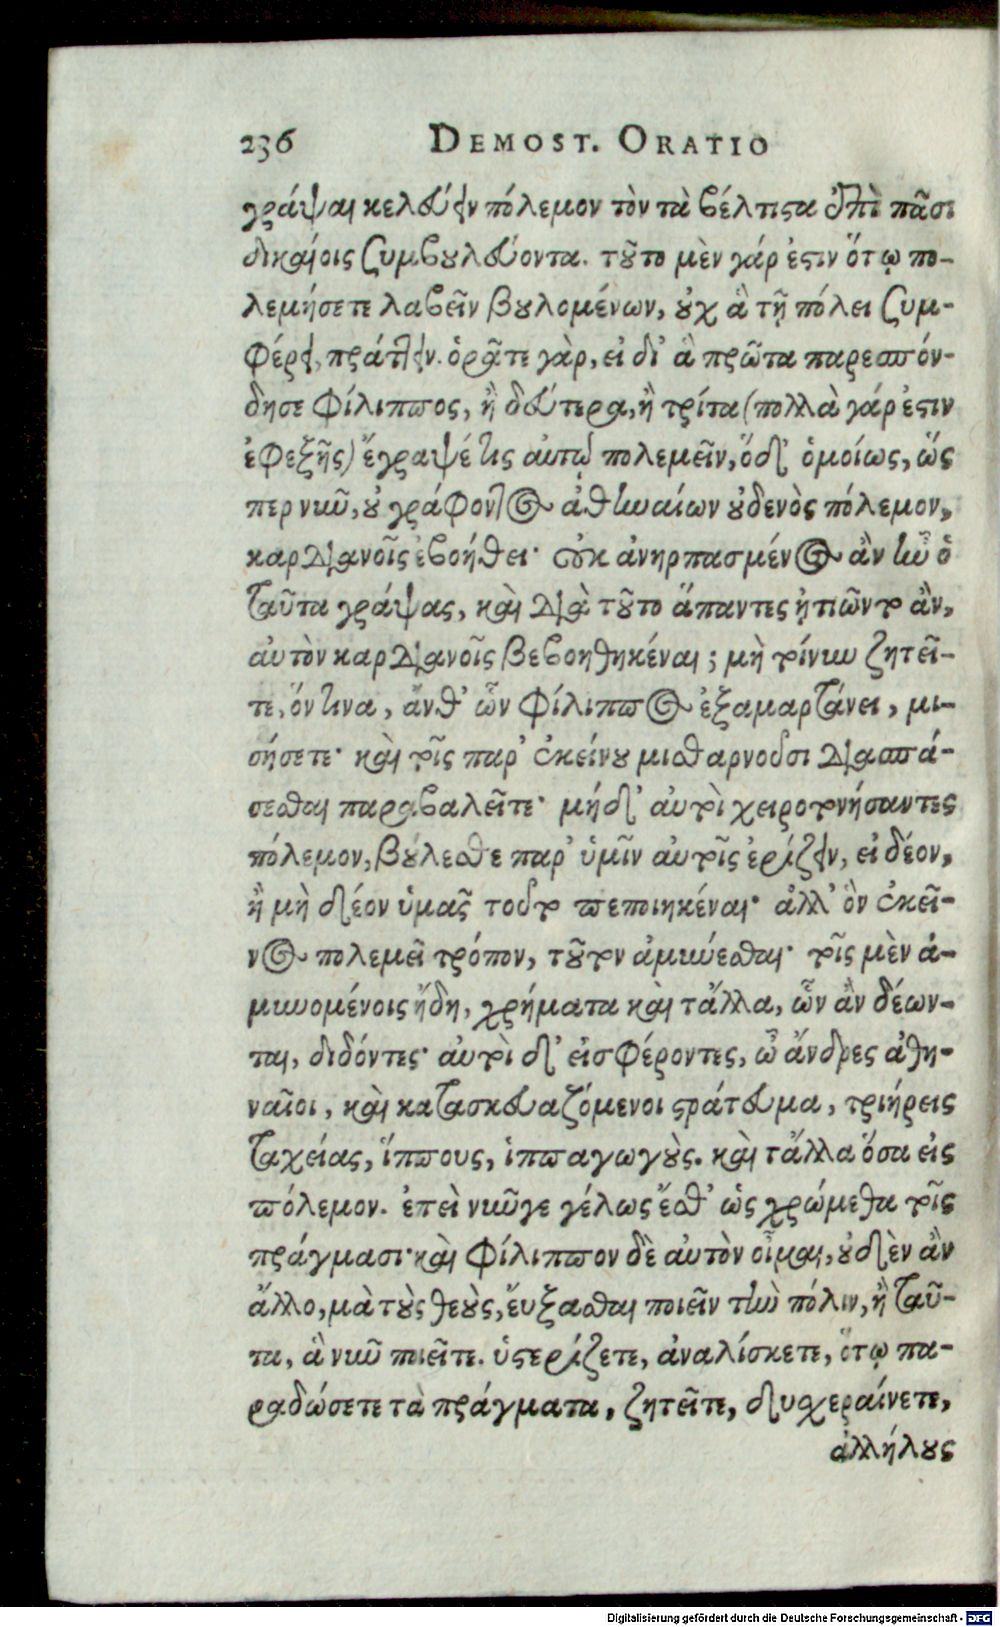 236 DEMOST. ORATIO
γράψαι κελεύειν πόλεμον τὸν τὰ βέλτιστα ἐπὶ πᾶσι
δικαίοις συμβουλεύοντα. τοῦτο μὲν γάρ ἐστιν ὅτῳ πο-
λεμήσετε λαβεῖν βουλομένων, οὐχ ἃ τῇ πόλει συμ-
φέρει, πράττειν. ὁρᾶτε γὰρ, εἰ δι' ἃ πρῶτα παρεσπόν-
δησε Φίλιππος, ἢ δεύτερα, ἢ τρίτα (πολλὰ γάρ ἐστιν
ἐφεξῆς) ἔγραψέ τις αὐτῷ πολεμεῖν, ὅδ' ὁμοίως, ὥς
περ νῦν, οὐ γράφοντος ἀθηναίων οὐδενὸς πόλεμον,
καρδιανοῖς ἐβοήθει· οὐκ ἀνηρπασμένος ἂν ἦν ὁ
ταῦτα γράψας, καὶ διὰ τοῦτο ἅπαντες ᾐτιῶντο ἂν,
αὐτὸν καρδιανοῖς βεβοηθηκέναι; μὴ τοίνυν ζητεῖ-
τε, ὅν τινα, ἀνθ' ὧν Φίλιππος ἐξαμαρτάνει, μι-
σήσετε· καὶ τοῖς παρ' ἐκείνου μισθαρνοῦσι διασπά-
σεσθαι παραβαλεῖτε· μήδ' αὐτοὶ χειροτονήσαντες
πόλεμον, βούλεσθε παρ' ὑμῖν αὐτοῖς ἐρίζειν, εἰ δέον,
ἢ μὴ δέον ὑμᾶς τοῦτο πεποιηκέναι· ἀλλ' ὃν ἐκεῖ-
νος πολεμεῖ τρόπον, τοῦτον ἀμύνεσθαι· τοῖς μὲν ἀ-
μυνομένοις ἤδη, χρήματα καὶ τἄλλα, ὧν ἂν δέων-
ται, διδόντες· αὐτοὶ δ' εἰσφέροντες, ὦ ἄνδρες ἀθη-
ναῖοι, καὶ κατασκευαζόμενοι στράτευμα, τριήρεις
ταχείας, ἵππους, ἱππαγωγοὺς. καὶ τἄλλα ὅσα εἰς
πόλεμον. ἐπεὶ νῦν γε γέλως ἔσθ' ὡς χρώμεθα τοῖς
πράγμασι· καὶ Φίλιππον δὲ αὐτὸν οἶμαι, οὐδὲν ἂν
ἄλλο, μὰ τοὺς θεοὺς, εὔξασθαι ποιεῖν τὴν πόλιν, ἢ ταῦ-
τα, ἃ νῦν ποιεῖτε. ὑστερίζετε, ἀναλίσκετε, ὅτῳ πα-
ραδώσετε τὰ πράγματα, ζητεῖτε, δυσχεραίνετε,
ἀλλήλους
Digitalisierung gefördert durch die Deutsche Forschungsgemeinschaft - DFG